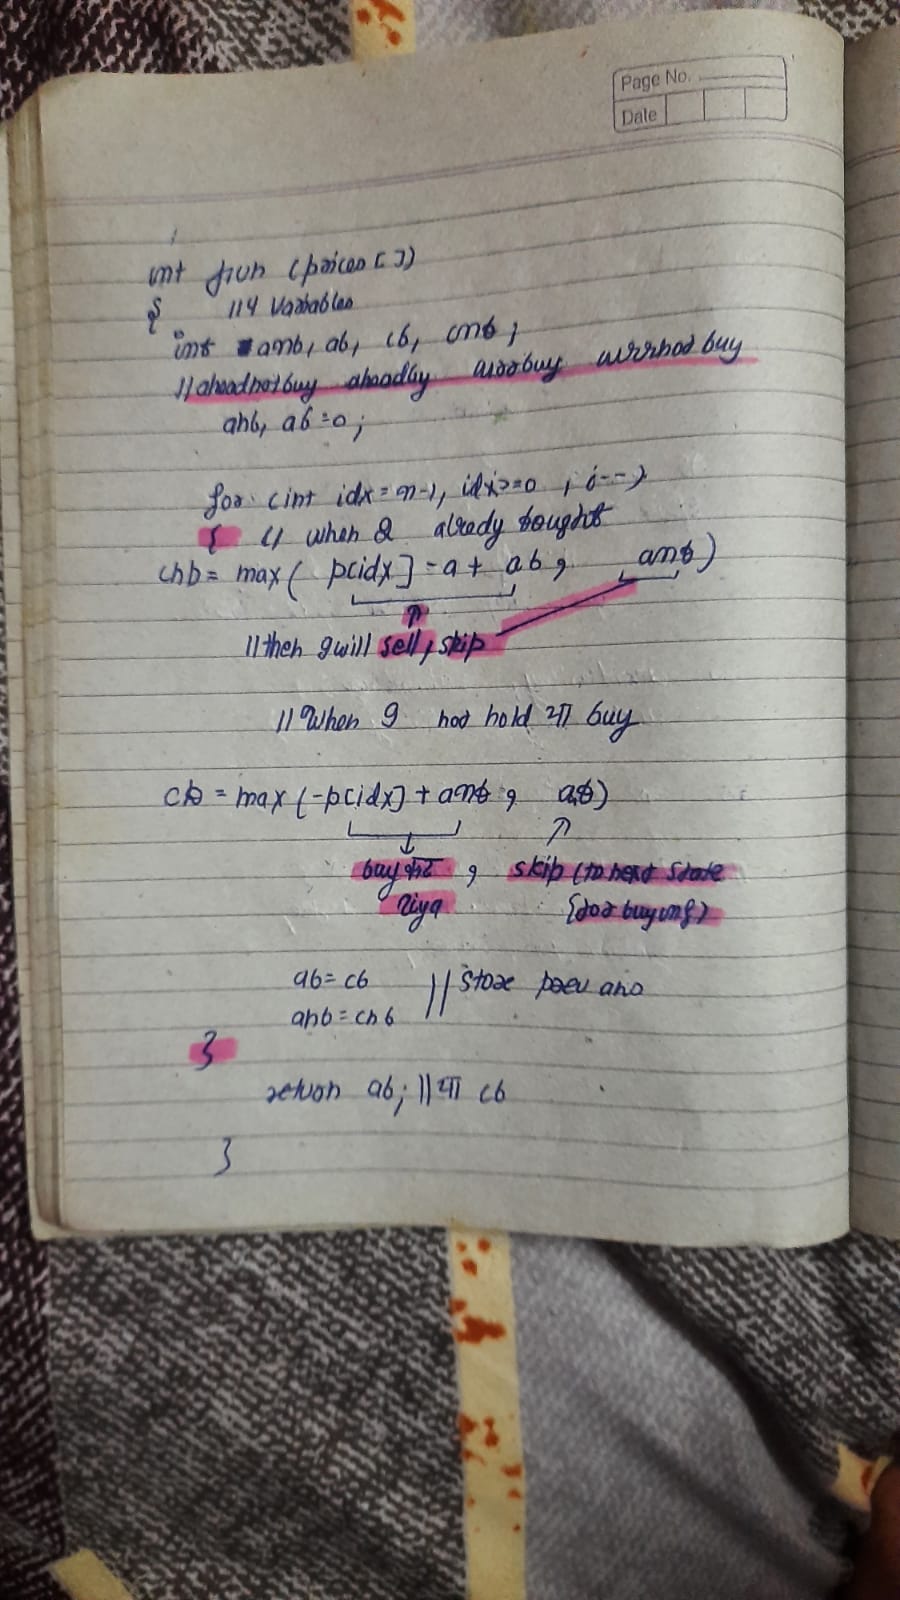 Page No.
Date
int fun (prices [])
{ // 4 variables
int anb, ab, cb, cnb;
// aheadnotbuy aheadby currbuy currnot buy
anb, ab = 0;
for (int idx = n-1, idx >= 0, i--)
{ // when I alredy bought
cnb = max( p[idx] - a + ab, anb)
// then I will sell, skip
// When I not hold या buy
cb = max (-p[idx] + anb, ab)
buy कर , skip (to next state
liya (for buying)
ab = cb // store prev ans
anb = cnb
}
return ab; // या cb
}